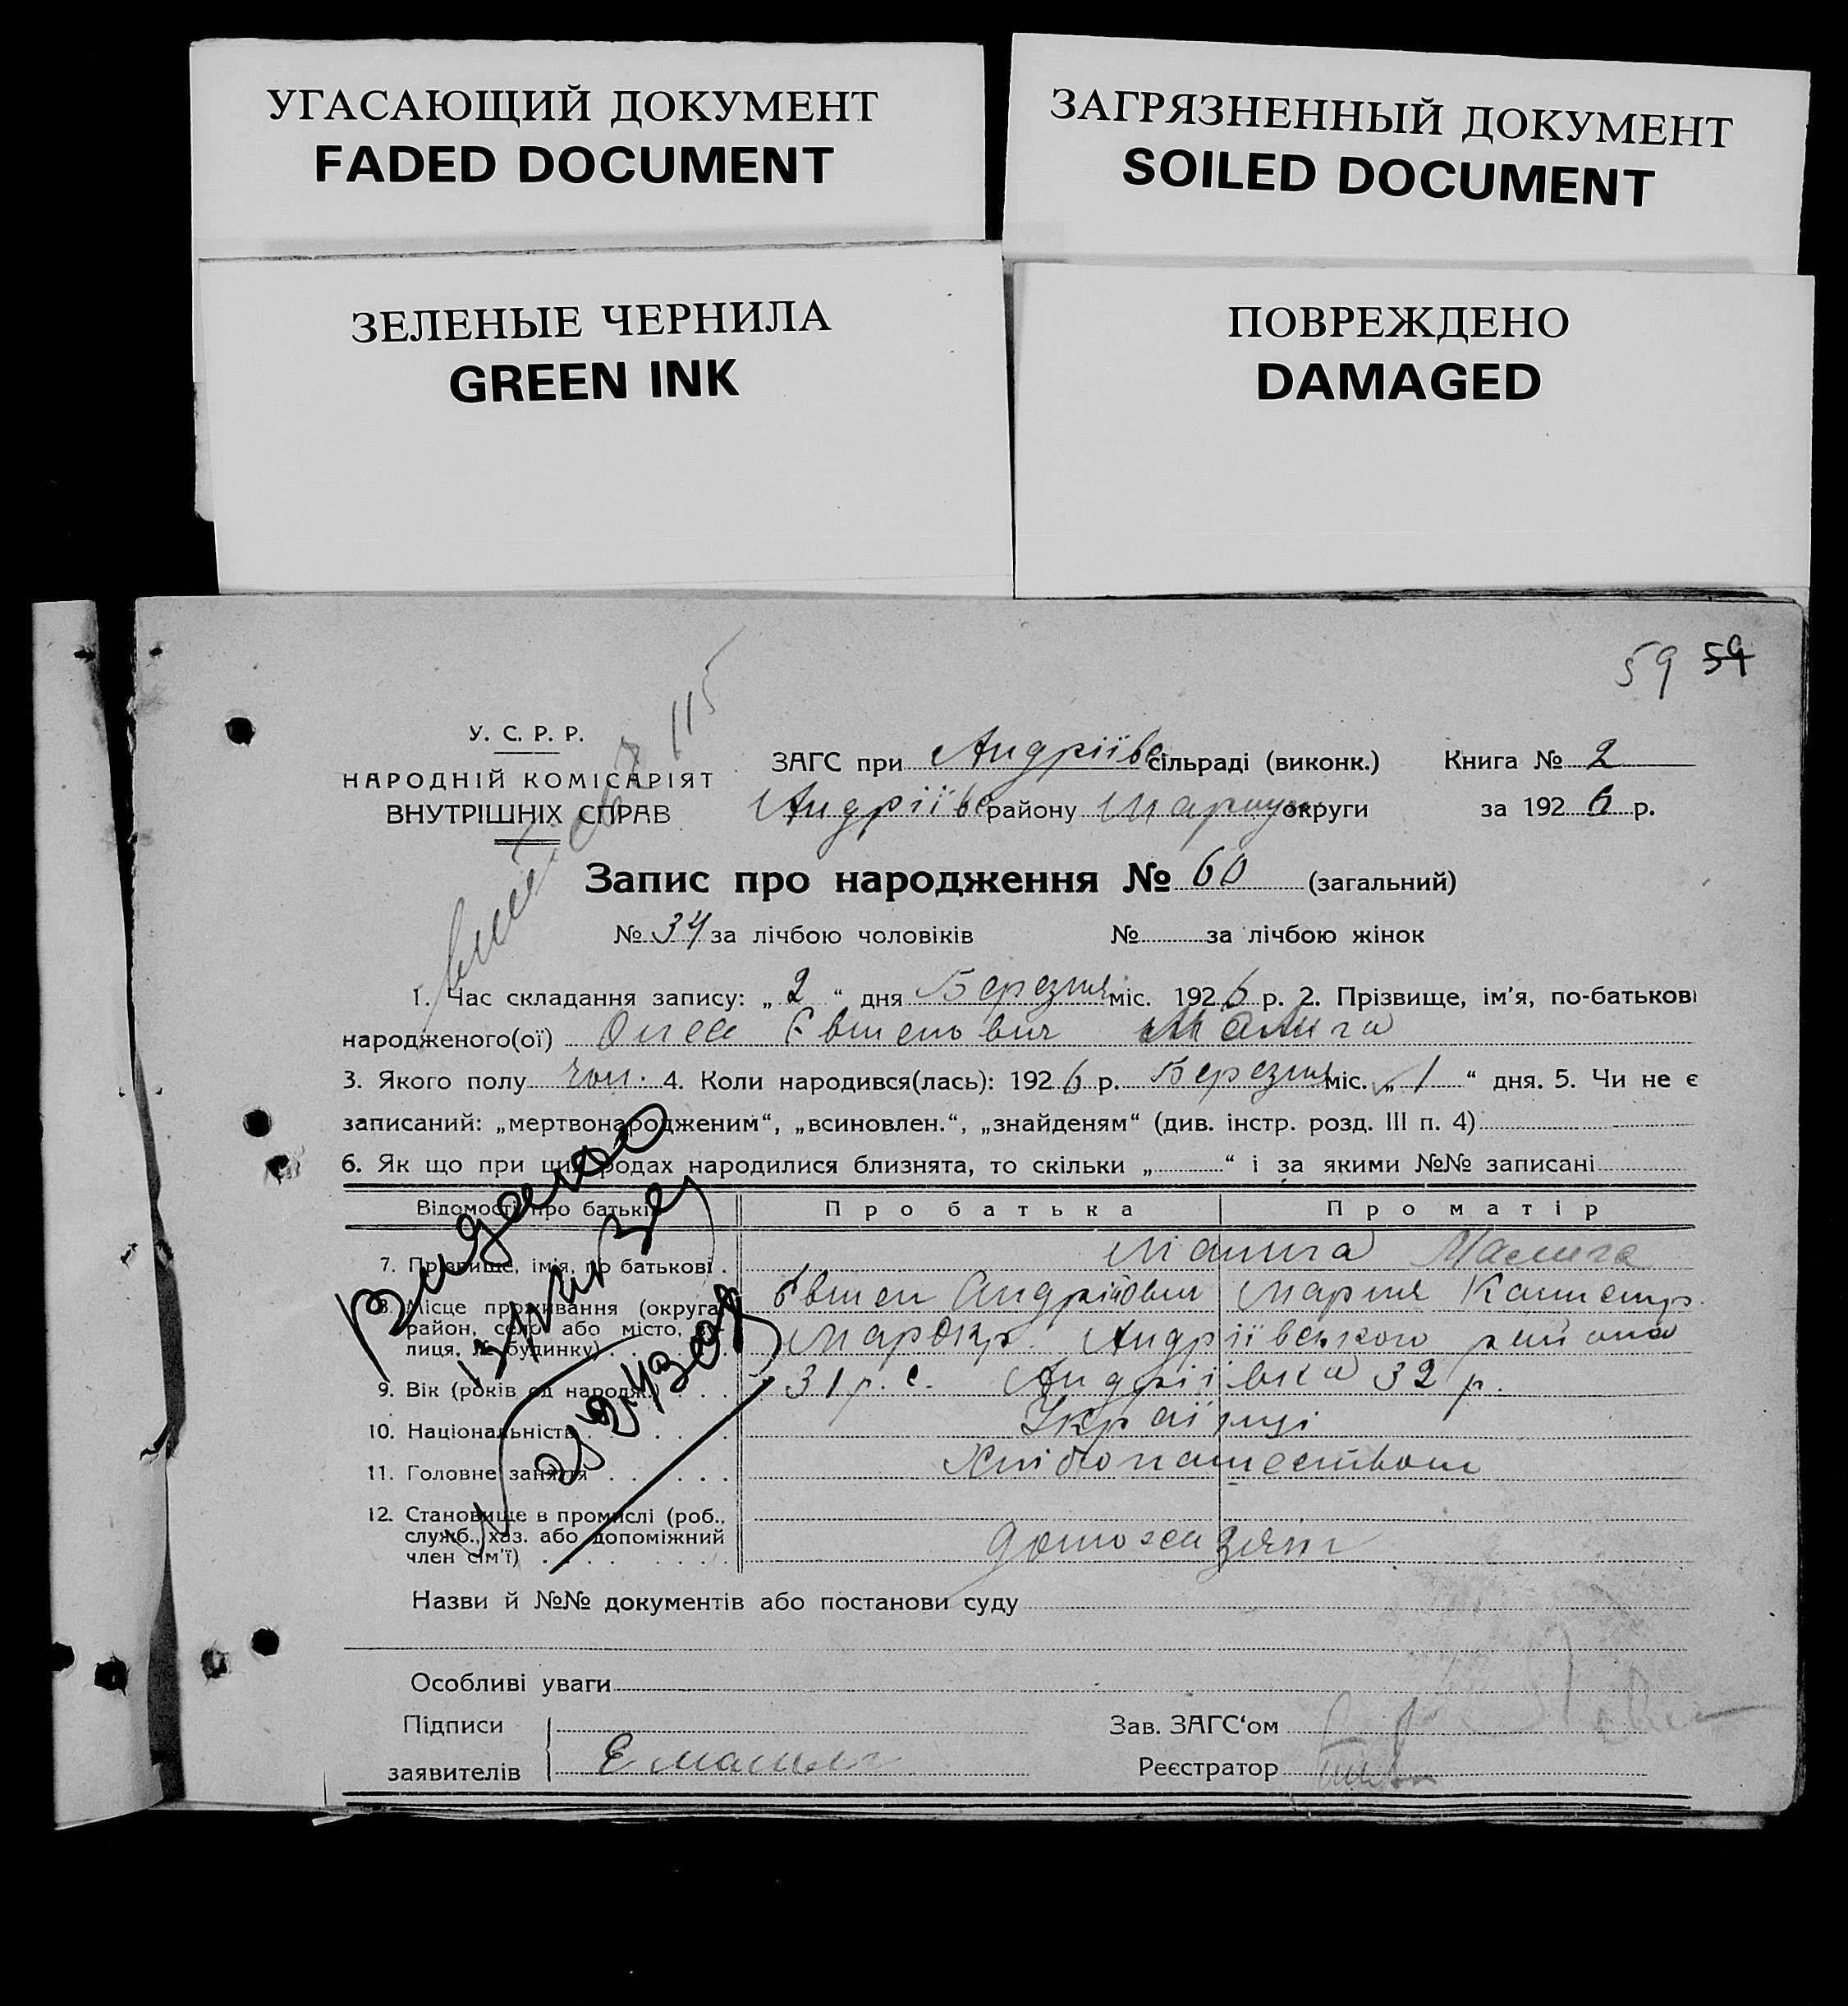 УГАСАЮЩИЙ ДОКУМЕНТ
FADED DOCUMENT
ЗАГРЯЗНЕННЫЙ ДОКУМЕНТ
SOILED DOCUMENT
ЗЕЛЕНЫЕ ЧЕРНИЛА
GREEN INK
ПОВРЕЖДЕНО
DAMAGED
59 59
115
У. С. Р. Р.
НАРОДНІЙ КОМІСАРІЯТ
ВНУТРІШНІХ СПРАВ
ЗАГС при Андріївс сільраді (виконк.) Книга № 2
Андріївс району Маріуп округи за 1926 р.
Запис про народження № 60 (загальний)
№ 34 за лічбою чоловіків № за лічбою жінок
1. Час складання запису: „ 2 “ дня Березня міс. 1926 р. 2. Прізвище, ім'я, по-батькові
народженого(ої)
3. Якого полу чол. 4. Коли народився(лась): 1926 р. Березня міс. „ 1 “ дня. 5. Чи не є
записаний: „мертвонародженим“, „всиновлен.“, „знайденям“ (див. інстр. розд. III п. 4)
6. Як що при цих родах народилися близнята, то скільки „ “ і за якими №№ записані
Відомості про батьків Про батька Про матір
7. Прізвище, ім'я, по батькові
Андрійович Мария
8. Місце проживання (округа, район, село або місто, вулиця, № будинку) Андріївського района
9. Вік (років од народж.) 31 р. с. Андріївка 32 р.
10. Національність Українці
11. Головне заняття Хлібопашество
12. Становище в промислі (роб., служб., хаз. або допоміжний член сім'ї)
Видано
Назви й №№ документів або постанови суду
Особливі уваги
Підписи заявителів
Зав. ЗАГС‘ом
Реєстратор